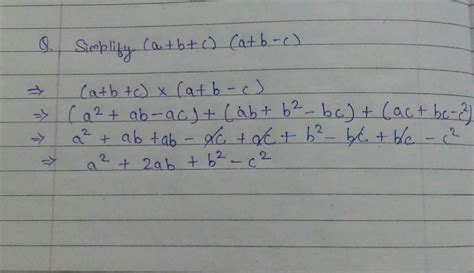 Q. Simplify (a+b+c) (a+b-c)
⇒ (a+b+c) × (a+b-c)
⇒ (a² + ab - ac) + (ab + b² - bc) + (ac + bc - c²)
⇒ a² + ab + ab - ac + ac + b² - bc + bc - c²
⇒ a² + 2ab + b² - c²